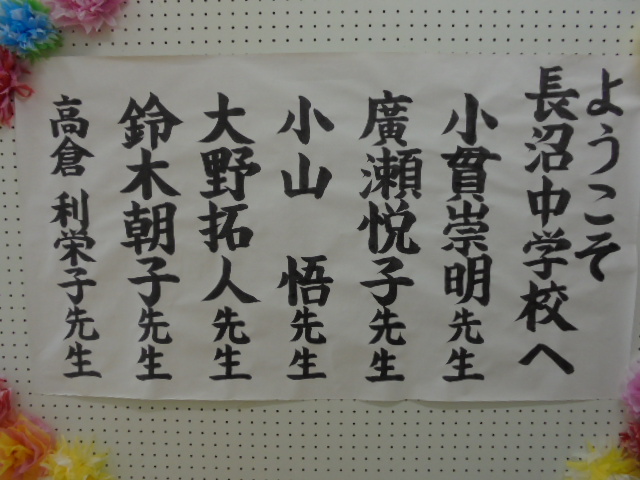 ようこそ
長沼中学校へ
小貫崇明先生
廣瀬悦子先生
小山　悟先生
大野拓人先生
鈴木朝子先生
高倉 利栄子先生